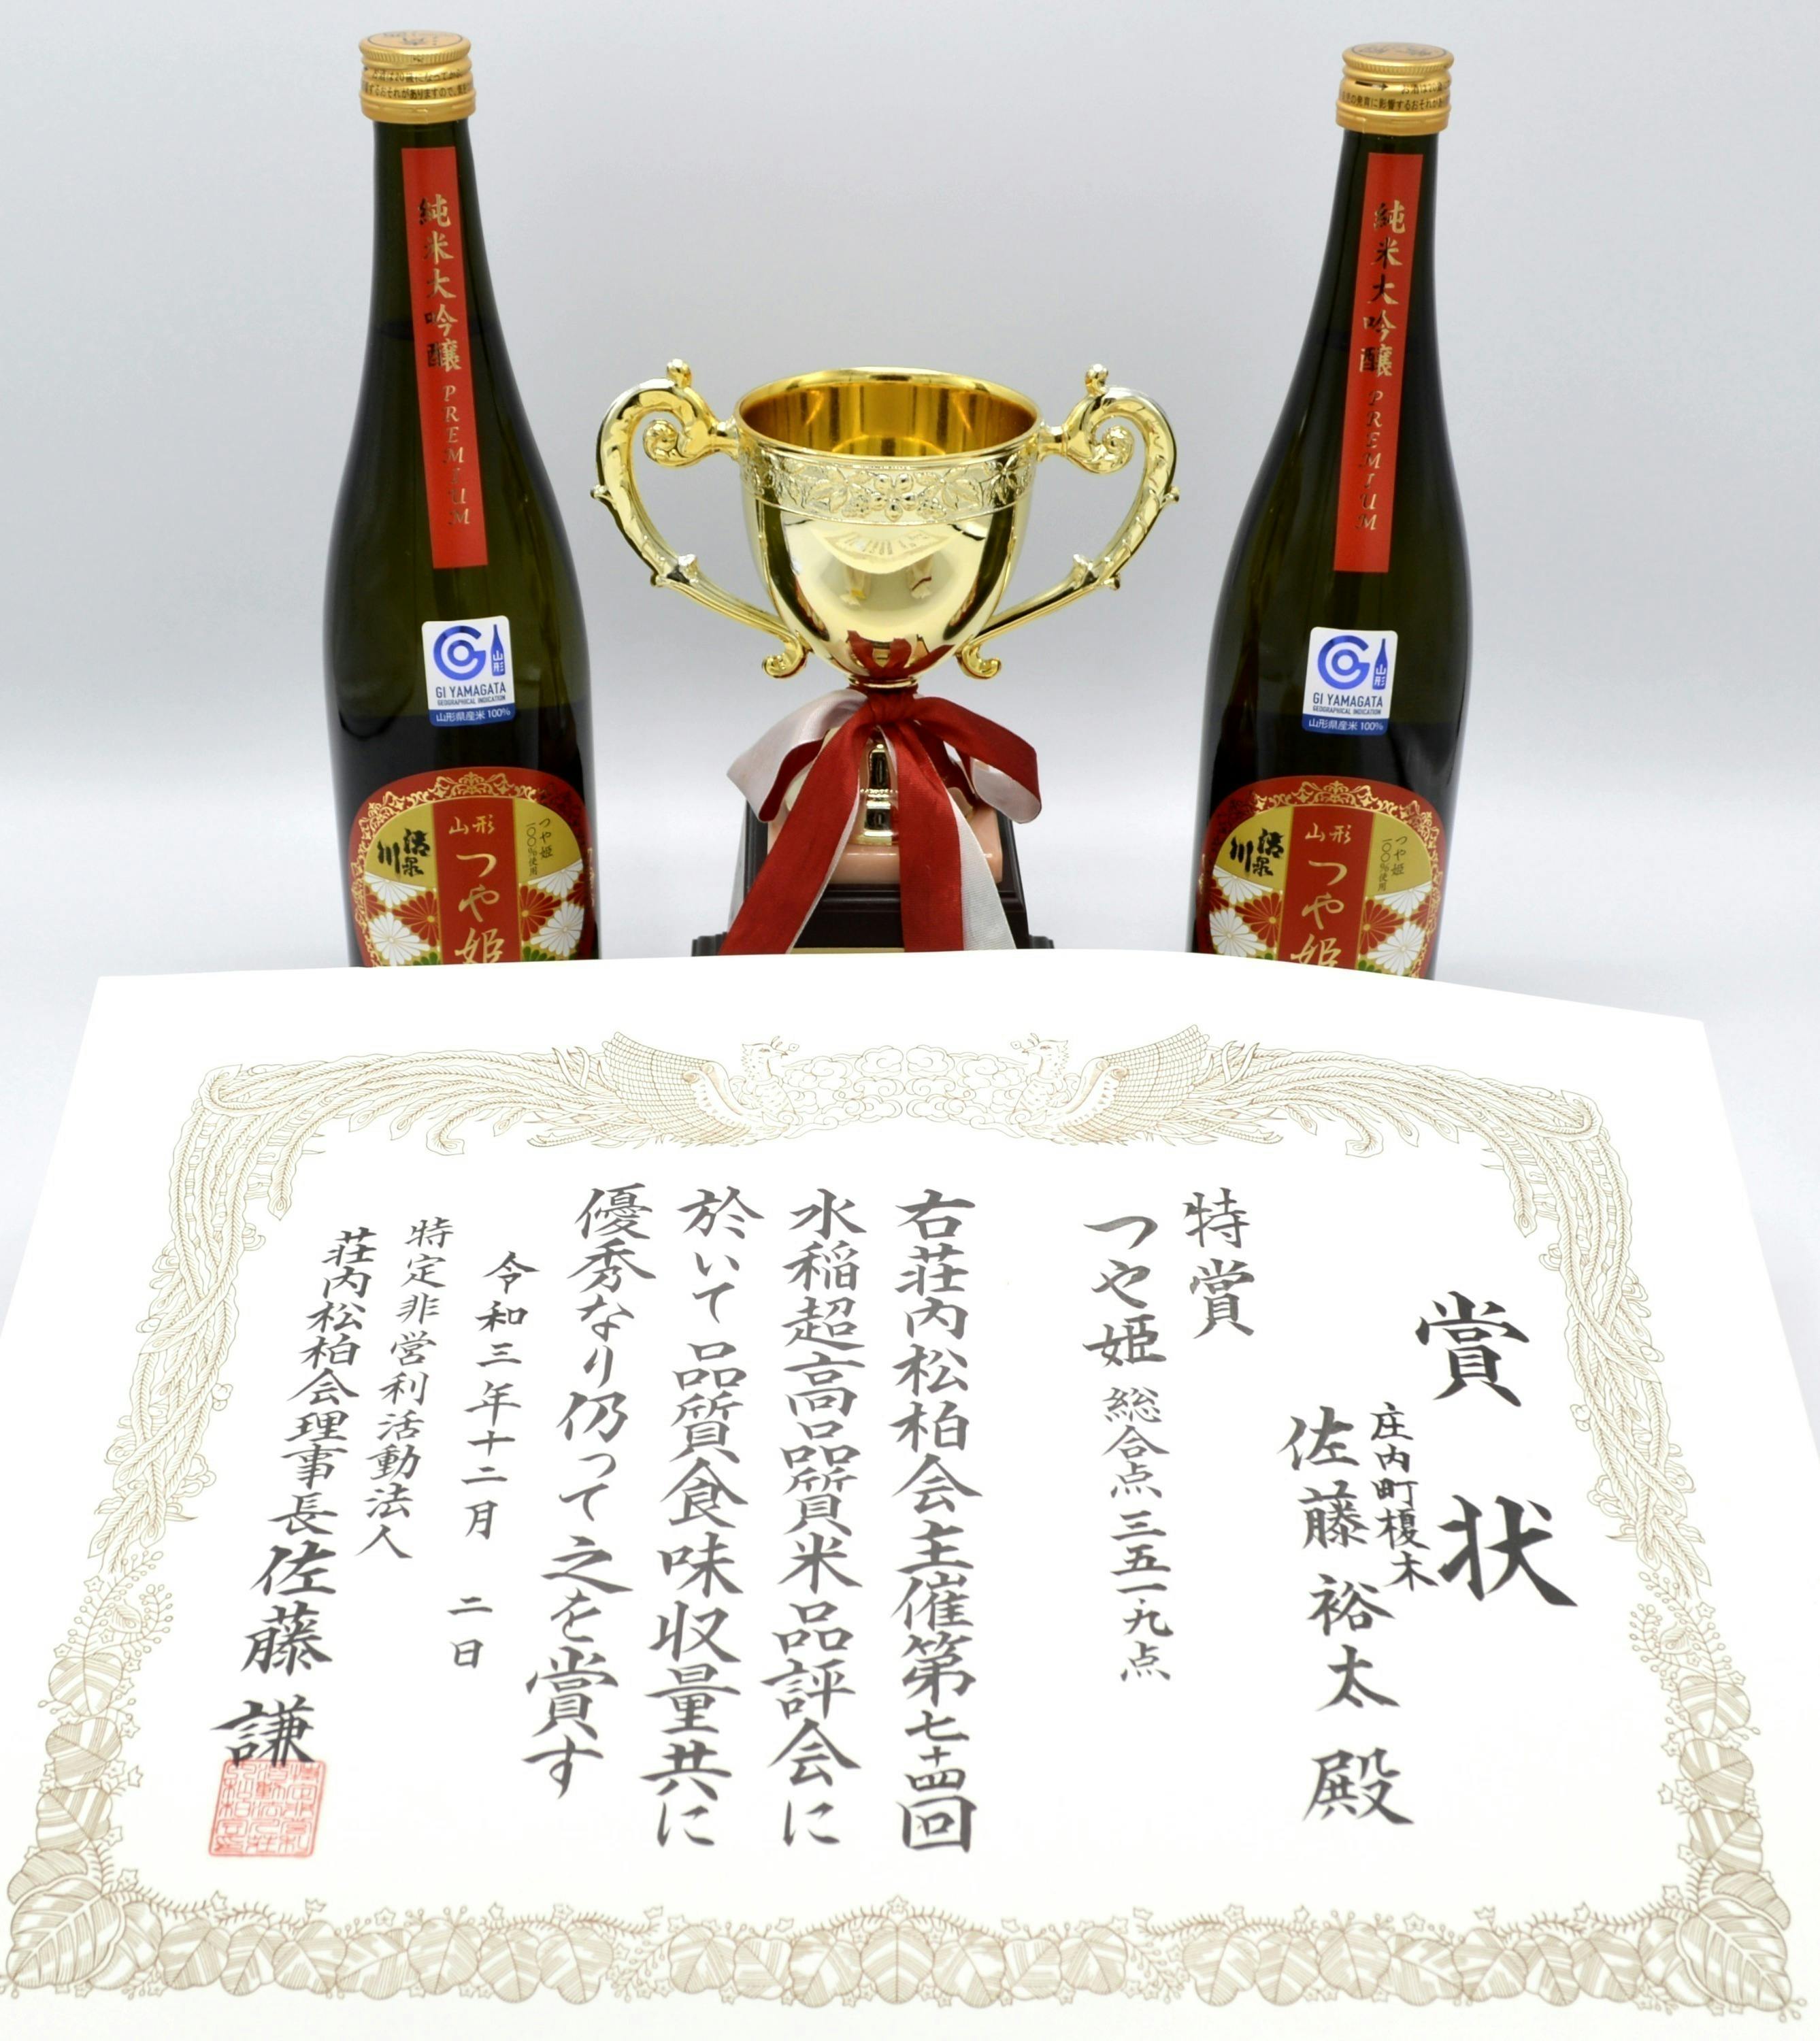 純米大吟醸 PREMIUM
GI YAMAGATA
GEOGRAPHICAL INDICATION
山形
山形県産米100%
つや姫
100%使用
山形
つや姫
純米大吟醸 PREMIUM
GI YAMAGATA
GEOGRAPHICAL INDICATION
山形
山形県産米100%
つや姫
100%使用
山形
つや姫
賞状
庄内町榎木
佐藤裕太殿
特賞
つや姫 総合点三五一・九点
右荘内松柏会主催第七十四回
水稲超高品質米品評会に
於いて品質食味収量共に
優秀なり仍って之を賞す
令和三年十二月 二日
特定非営利活動法人
荘内松柏会理事長佐藤 謙